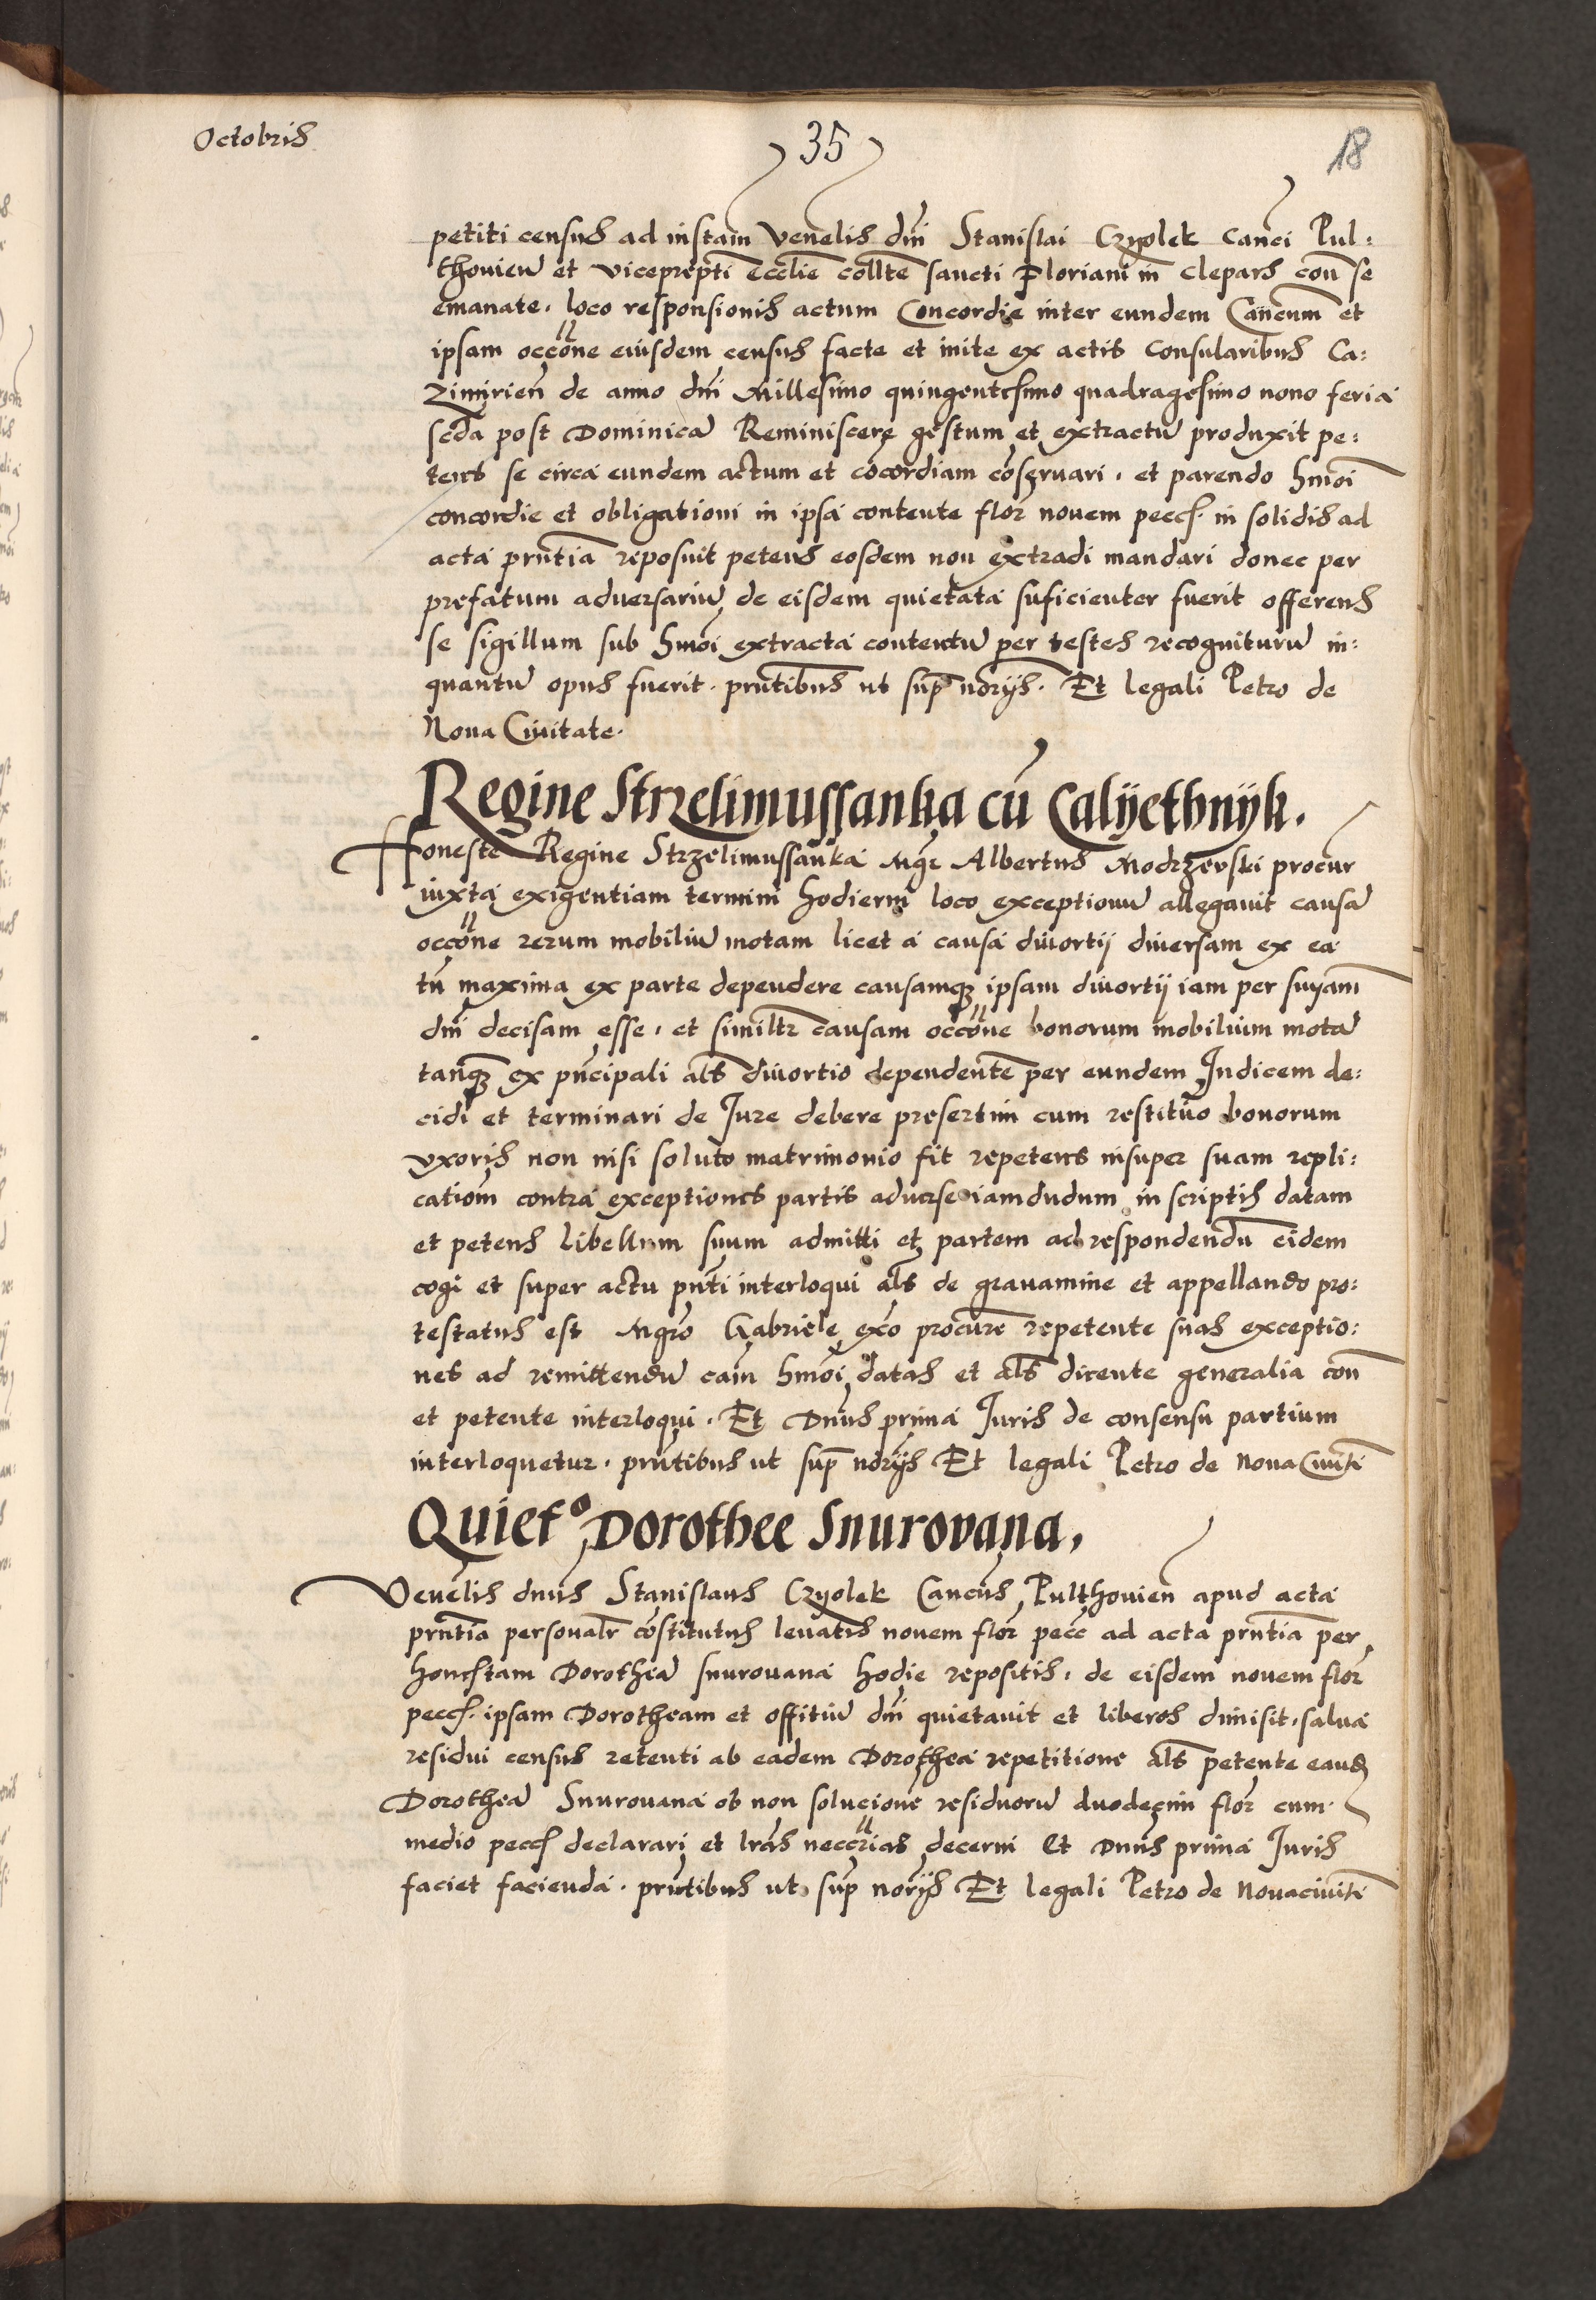 Octobris
35
18
petiti census ad instam Venelis dni Stanislai Czyolek Canci Pul:
thouien et viceprepti Ecclie collte sancti Floriani in Clepars con se
emanate. loco responsionis actum Concordie inter eundem Cancum et
ipsam occone eiusdem census facte et inite ex actis Consularibus Ca:
zimirien de anno dni Millesimo quingentesimo quadragesimo nono feria
scda post Dominica Reminiscere gestum et extractu produxit pe:
tens se circa eundem actum et cocordiam coseruari. et parendo hmoi
concordie et obligationi in ipsa contente flor nouem pecc. in solidis ad
acta pntia reposuit petens eosdem non extradi mandari donec per
prefatum aduersariu de eisdem quietata suficienter fuerit offerens
se sigillum sub hmoi extracta contentu per testes recognituru in:
quantu opus fuerit. pntibus ut sup norijs. Et legali Petro de
Noua Ciuitate.
Regine Strzelimussanka cu Calÿethnÿk.
Honeste Regine Strzelimussanka Mgr Albertus Modrzewski procur
iuxta exigentiam termini hodierni loco exceptionu allegauit causa
occone rerum mobiliu motam licet a causa diuortij diuersam ex ea
tn maxima ex parte dependere causamq ipsam diuortij iam per suyam
dni decisam esse. et similtr causam occone bonorum mobilium mota
tanq ex pncipali als diuortio dependente per eundem Judicem de:
cidi et terminari de Jure debere presertim cum restituo bonorum
vxoris non nisi soluto matrimonio fit repetens insuper suam repli:
cationm contra exceptiones partis aduerse iamdudum in scriptis datam
et petens libellum suum admitti et partem ad respondendu eidem
cogi et super actu pnti interloqui als de grauamine et appellando pro:
testatus est Mgro Gabriele exo procure repetente suas exceptio:
nes ad remittendu cam hmoi datas et als dicente generalia con
et petente interloqui. Et Dnus prima Juris de consensu partium
interloquetur. pntibus ut sup norijs Et legali Petro de Noua Ciuiti
Quieto Dorothee Snurovana.
Venelis dnus Stanislaus Czyolek Cancus Pulthouien apud acta
pntia personalr costitutus leuatis nouem flor pecc ad acta pntia per
honestam Dorothea snurouana hodie repositis. de eisdem nouem flor
pecc. ipsam Dorotheam et offitiu dni quietauit et liberos dimisit. salua
residui census retenti ab eadem Dorothea repetitione als petente eand
Dorothea Snurouana ob non solucione residuoru duodecim flor cum
medio pecc declarari et lras neccrias decerni Et Dnus prima Juris
faciet facienda. pntibus ut sup norijs Et legali Petro de Nouaciuiti